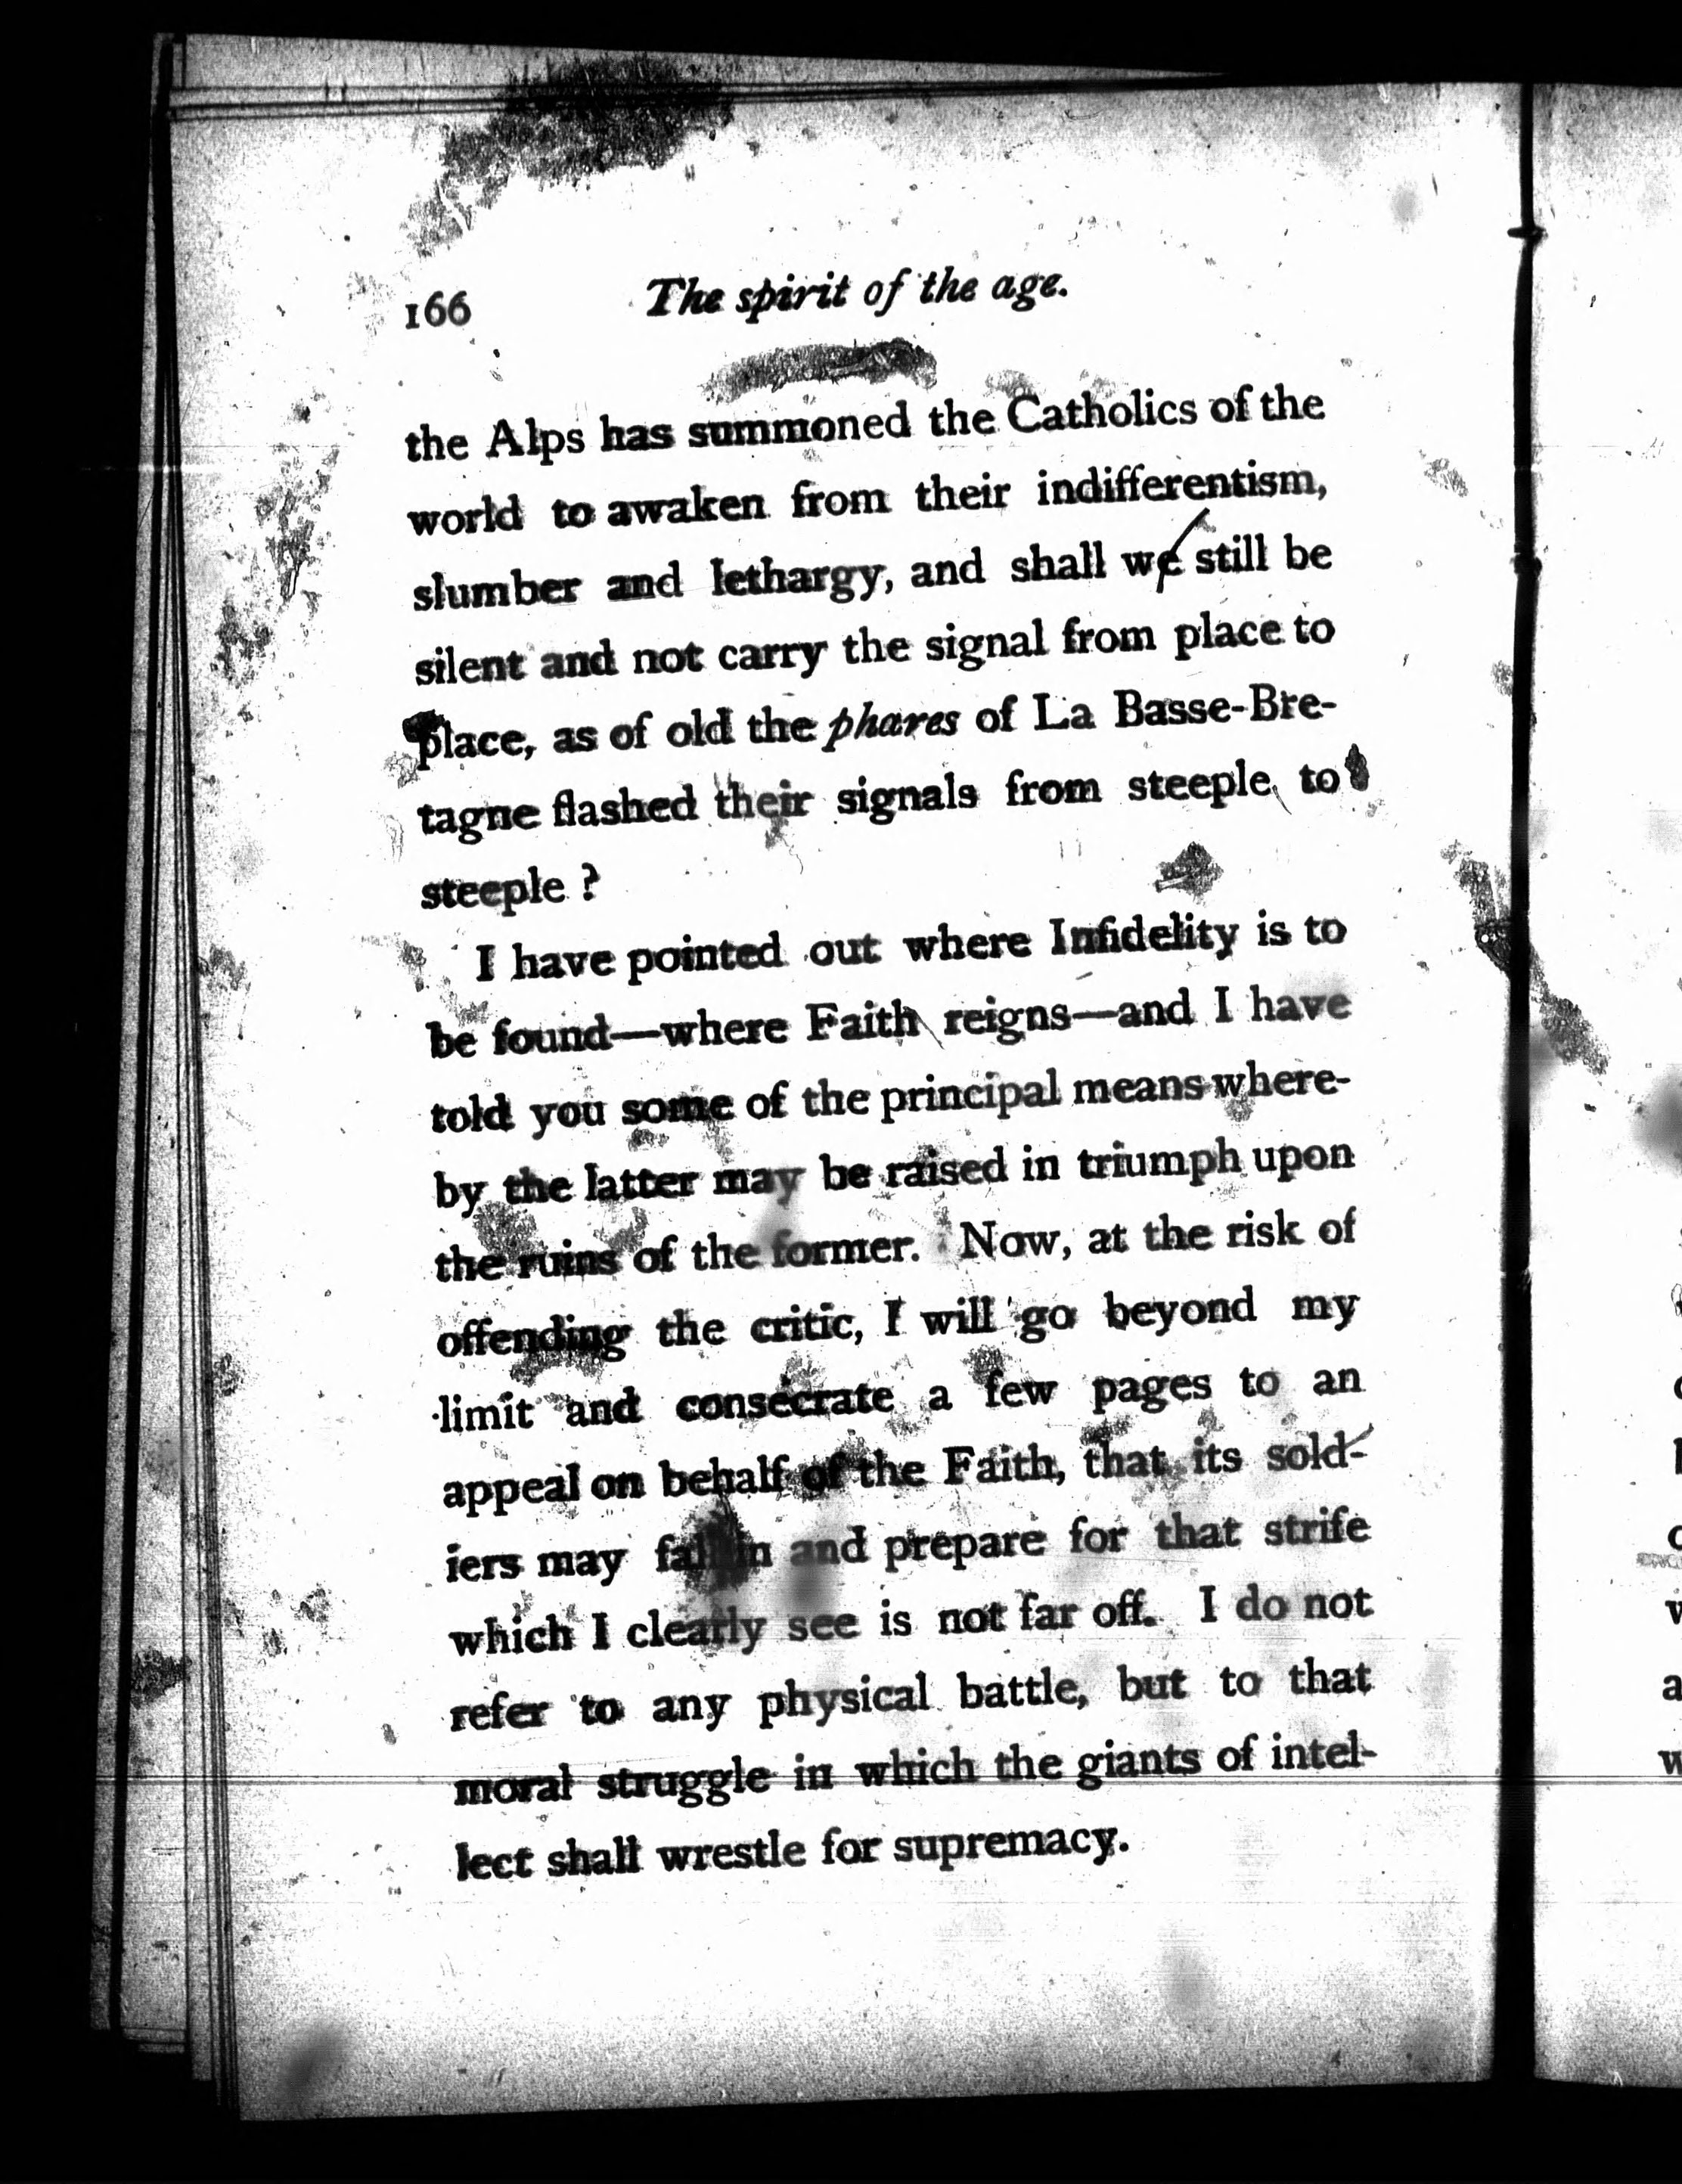 166 The spirit of the age.
the Alps has summoned the Catholics of the
world to awaken from their indifferentism,
slumber and lethargy, and shall we still be
silent and not carry the signal from place to
place, as of old the phares of La Basse-Bre-
tagne flashed their signals from steeple to
steeple ?
I have pointed out where Infidelity is to
be found—where Faith reigns—and I have
told you some of the principal means where-
by the latter may be raised in triumph upon
the ruins of the former. Now, at the risk of
offending the critic, I will go beyond my
limit and consecrate a few pages to an
appeal on behalf of the Faith, that its sold-
iers may fall in and prepare for that strife
which I clearly see is not far off. I do not
refer to any physical battle, but to that
moral struggle in which the giants of intel-
lect shall wrestle for supremacy.